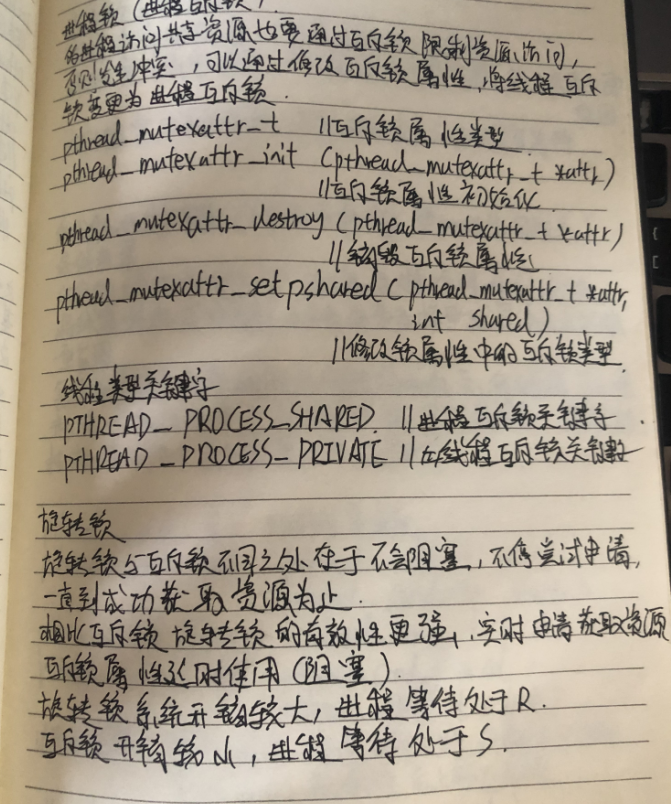 进程锁（进程互斥锁）
多进程访问共享资源也要通过互斥锁限制资源访问，
否则发生冲突，可以通过修改互斥锁属性，将线程互斥
锁变更为进程互斥锁．
pthread_mutexattr_t //互斥锁属性类型
pthread_mutexattr_init (pthread_mutexattr_t *attr)
//互斥锁属性初始化
pthread_mutexattr_destroy (pthread_mutexattr_t *attr)
//销毁互斥锁属性
pthread_mutexattr_setpshared (pthread_mutexattr_t *attr,
int shared)
//修改锁属性中的互斥锁类型．
线程类型关键字
PTHREAD_PROCESS_SHARED. //进程互斥锁关键字．
PTHREAD_PROCESS_PRIVATE //线程互斥锁关键字
旋转锁
旋转锁与互斥锁不同之处在于不会阻塞，不停尝试申请，
一直到成功获取资源为止．
相比互斥锁 旋转锁的有效性更强，实时申请获取资源
互斥锁属性延时使用（阻塞）．
旋转锁系统开销较大，进程等待处于R．
互斥锁开销较小，进程等待处于S．